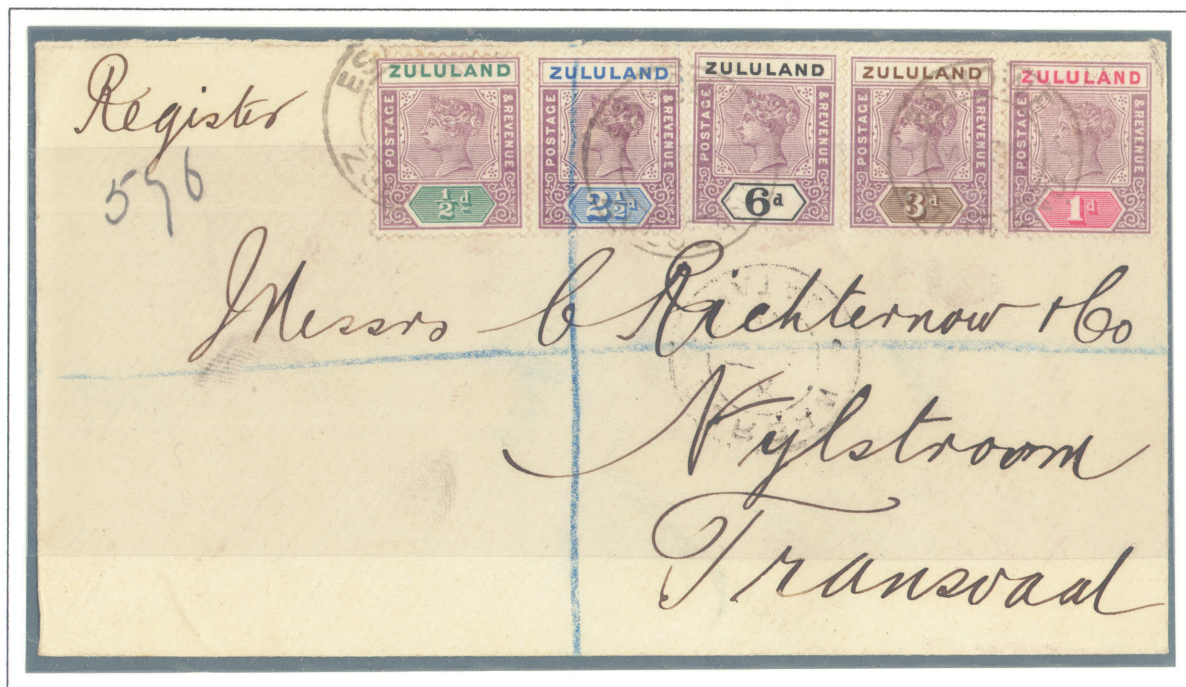 Register
576
ZULULAND
POSTAGE & REVENUE
½d
ZULULAND
POSTAGE & REVENUE
2½d
ZULULAND
POSTAGE & REVENUE
6d
ZULULAND
POSTAGE & REVENUE
3d
ZULULAND
POSTAGE & REVENUE
1d
Messrs C Richternow & Co
Nylstroom
Transvaal